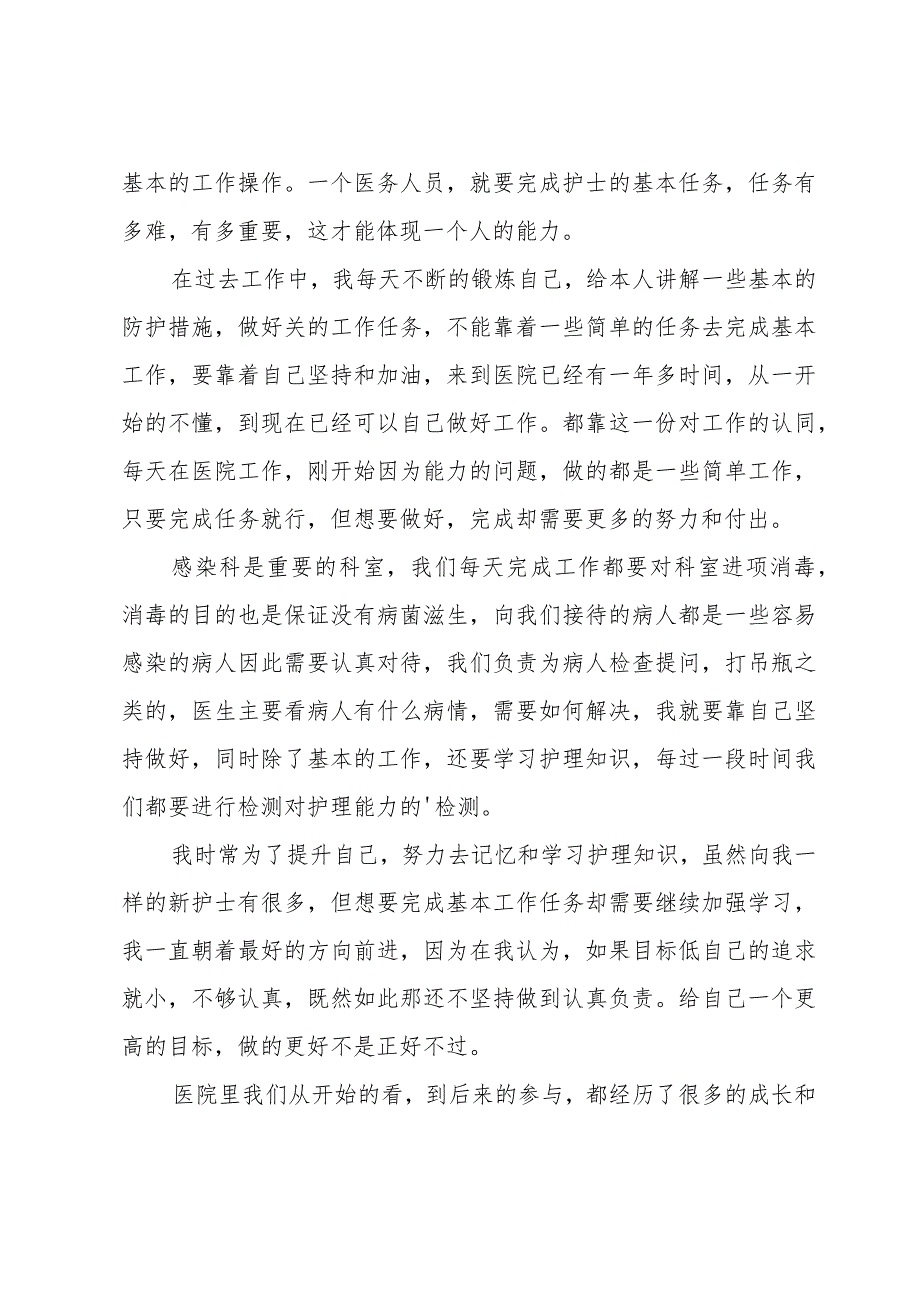 基本的工作操作。一个医务人员，就要完成护士的基本任务，任务有
多难，有多重要，这才能体现一个人的能力。
在过去工作中，我每天不断的锻炼自己，给本人讲解一些基本的
防护措施，做好关的工作任务，不能靠着一些简单的任务去完成基本
工作，要靠着自己坚持和加油，来到医院已经有一年多时间，从一开
始的不懂，到现在已经可以自己做好工作。都靠这一份对工作的认同，
每天在医院工作，刚开始因为能力的问题，做的都是一些简单工作，
只要完成任务就行，但想要做好，完成却需要更多的努力和付出。
感染科是重要的科室，我们每天完成工作都要对科室进项消毒，
消毒的目的也是保证没有病菌滋生，向我们接待的病人都是一些容易
感染的病人因此需要认真对待，我们负责为病人检查提问，打吊瓶之
类的，医生主要看病人有什么病情，需要如何解决，我就要靠自己坚
持做好，同时除了基本的工作，还要学习护理知识，每过一段时间我
们都要进行检测对护理能力的'检测。
我时常为了提升自己，努力去记忆和学习护理知识，虽然向我一
样的新护士有很多，但想要完成基本工作任务却需要继续加强学习，
我一直朝着最好的方向前进，因为在我认为，如果目标低自己的追求
就小，不够认真，既然如此那还不坚持做到认真负责。给自己一个更
高的目标，做的更好不是正好不过。
医院里我们从开始的看，到后来的参与，都经历了很多的成长和